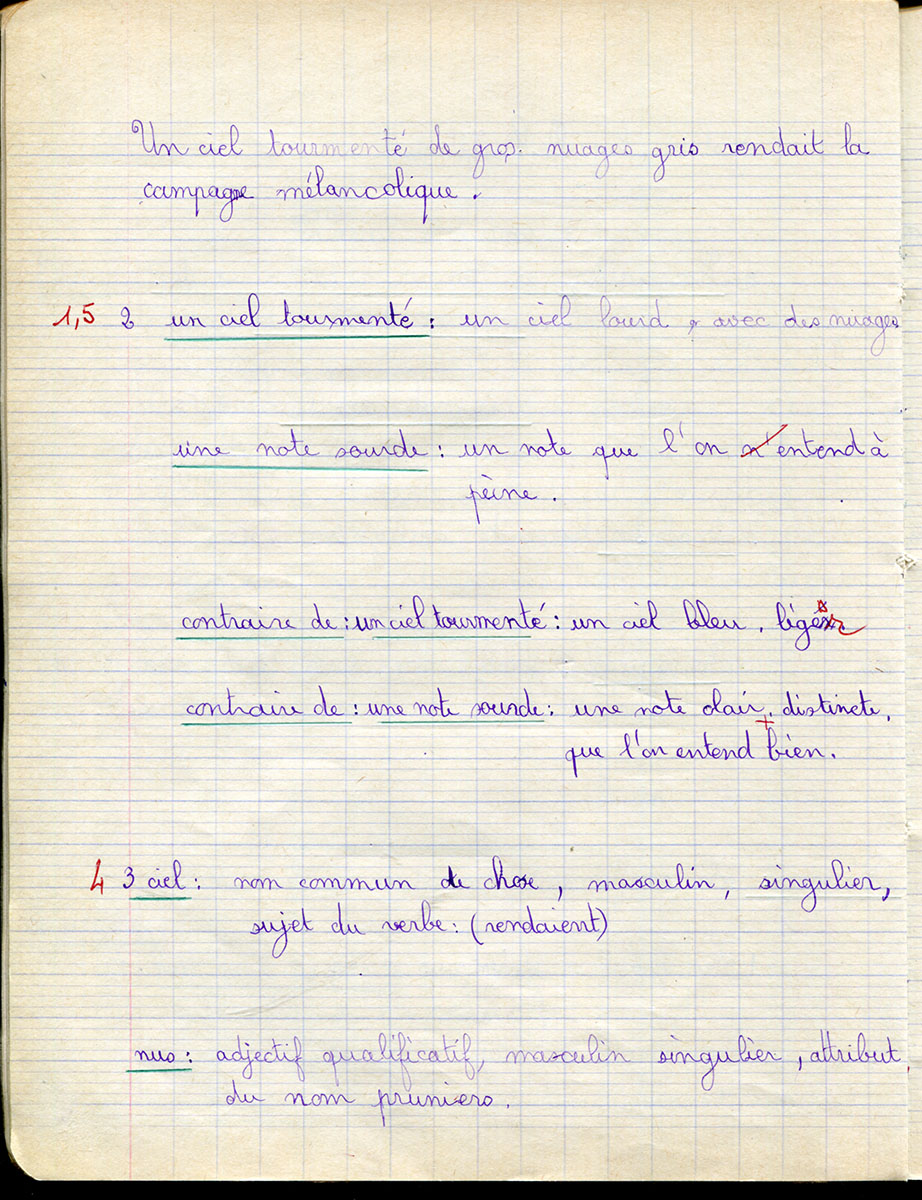 Un ciel tourmenté de gros. nuages gris rendait la
campagne mélancolique.
1,5 2 un ciel tourmenté : un ciel lourd, avec des nuages
une note sourde : un note que l'on n'entend à
peine.
contraire de : un ciel tourmenté : un ciel bleu, léger
contraire de : une note sourde : une note clair, distincte,
que l'on entend bien.
4 3 ciel : nom commun de chose, masculin, singulier,
sujet du verbe : (rendaient)
nus : adjectif qualificatif, masculin singulier, attribut
du nom pruniers.